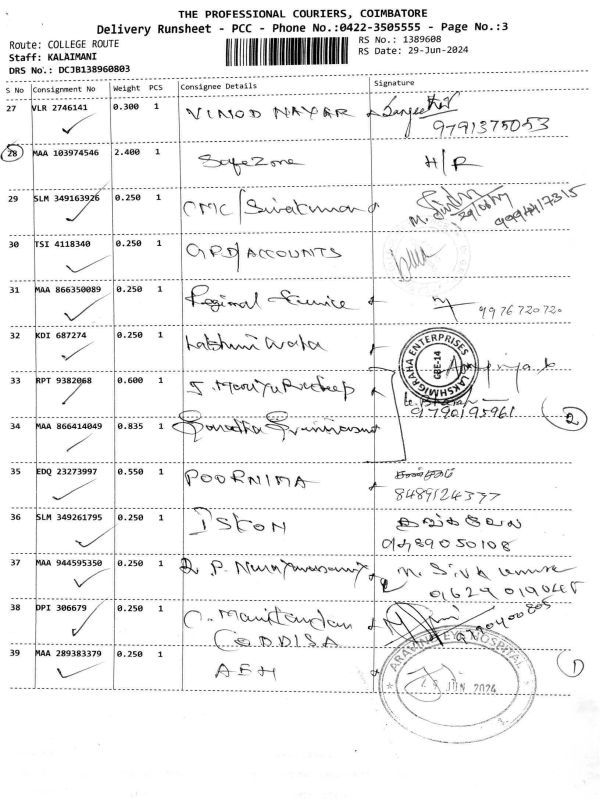 THE PROFESSIONAL COURIERS, COIMBATORE
Delivery Runsheet - PCC - Phone No.:0422-3505555 - Page No.:3
Route: COLLEGE ROUTE
Staff: KALAIMANI
DRS No.: DCJB138960803
RS No.: 1389608
RS Date: 29-Jun-2024
S No Consignment No Weight PCS Consignee Details Signature
27 VLR 2746141 0.300 1 VINOD NAYAR
9791375053
28 MAA 103974546 2.400 1 Safe Zone H/R
29 SLM 349163926 0.250 1 CMC/Sivakumar
9994417315
30 TSI 4118340 0.250 1 GPD/ACCOUNTS
31 MAA 866350089 0.250 1 Regional Service
9976720720
32 KDI 687274 0.250 1
LAKSHMIGRAHA ENTERPRISES
CBE-14
33 RPT 9382068 0.600 1
9790195961
2
34 MAA 866414049 0.835 1
35 EDQ 23273997 0.550 1 POORNIMA
8489124377
36 SLM 349261795 0.250 1 ISKON
9489050108
37 MAA 944595350 0.250 1
38 DPI 306679 0.250 1 C. Manikandan
CODDISA
39 MAA 289383379 0.250 1 AEH
ARAVIND EYE HOSPITAL
JUN 2024
1